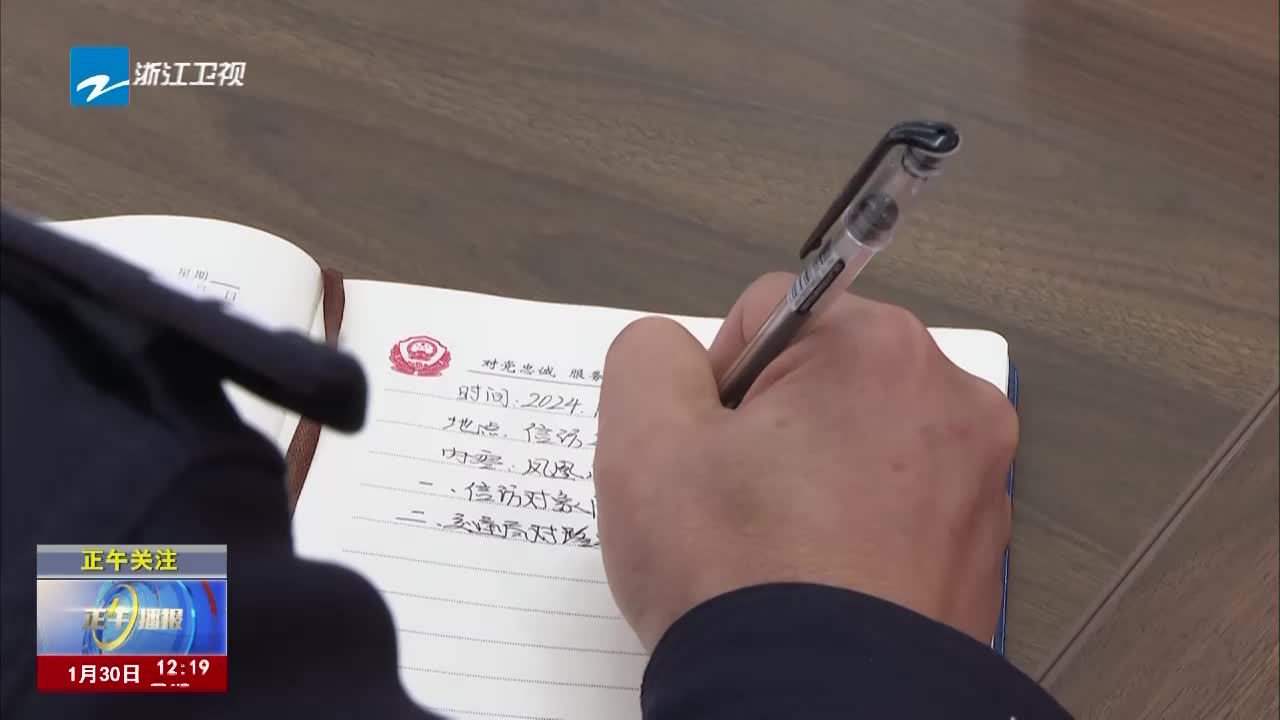 浙江卫视
星期
日
对党忠诚 服务
时间:2024.
地点:信访
内容:凤凰
一、信访对象
二、交通局对
正午关注
正午播报
1月30日 12:19